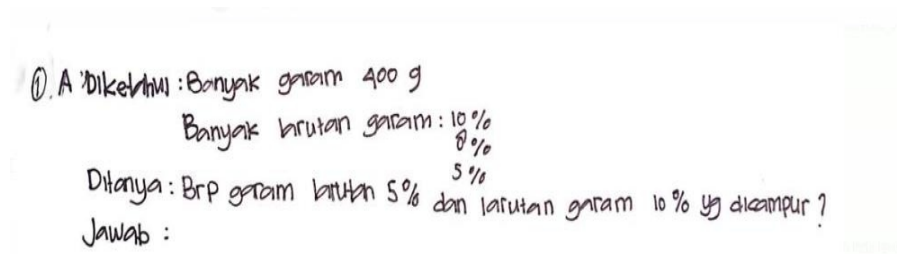 ①. A Diketahui : Banyak garam 400 g
Banyak larutan garam : 10%
8%
5%
Ditanya : Brp garam larutan 5% dan larutan garam 10% yg dicampur ?
Jawab :